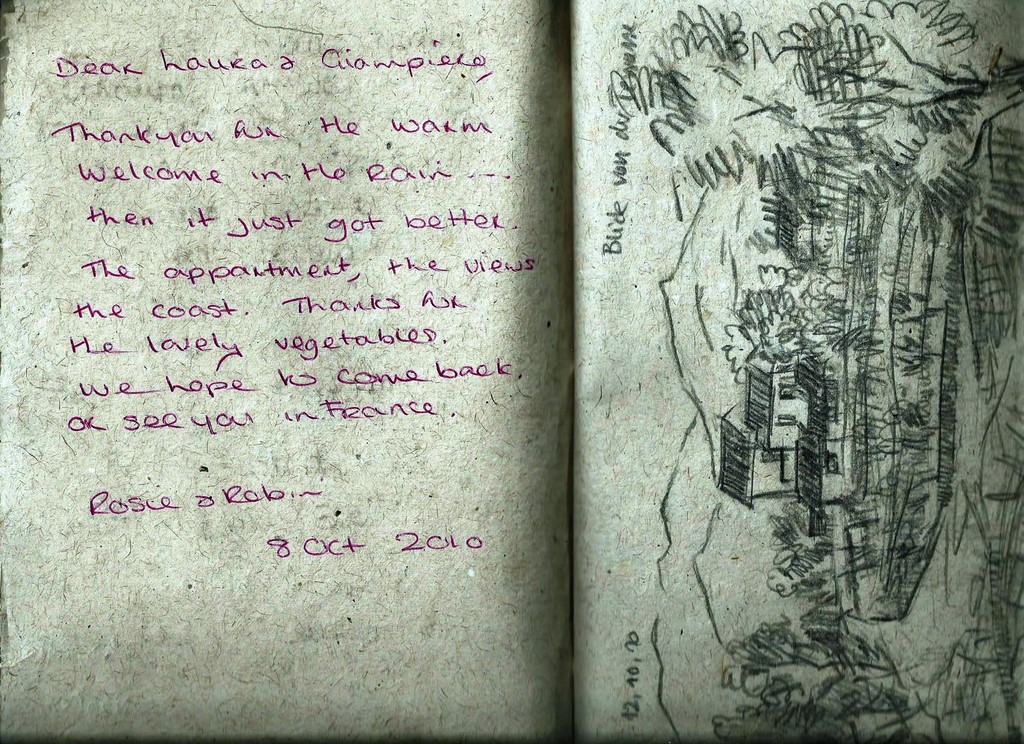 Dear Laura & Giampiero,
Thankyou for the warm
welcome in the Rain ....
then it just got better.
The appartment, the views
the coast. Thanks for
the lovely vegetables.
we hope to come back.
or see you in France.
Rosie & Robin
8 Oct 2010
Blick von der Terrasse
12.10.10